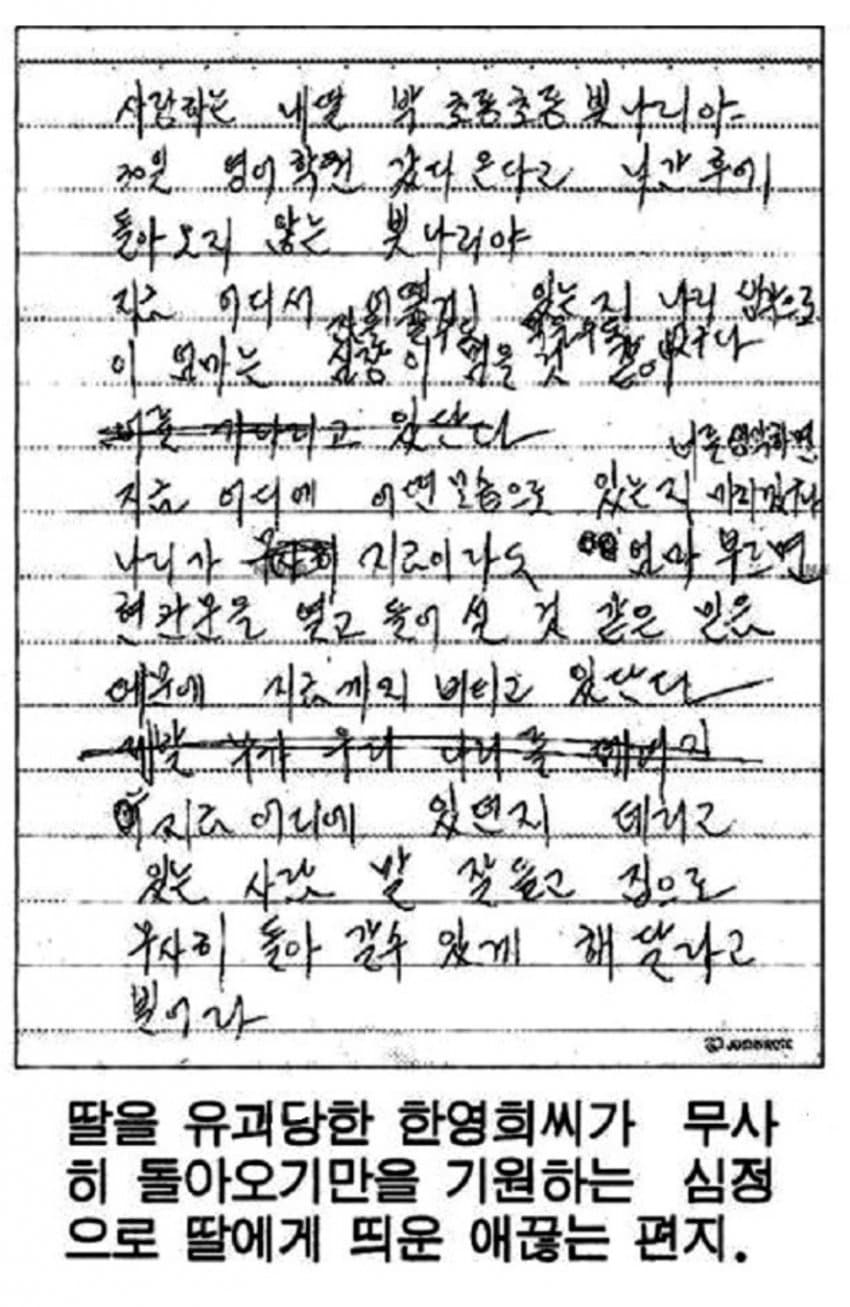 사랑하는 내딸 박 초롱초롱 빛나리야
30일 영어학원 갔다 온다고 나간 후에
돌아오지 않는 빛나리야
지금 어디서 있는지 나리 생각으로
이 엄마는 심장이 멈을 것 같구나
너를 기다리고 있단다
너를 생각하면
지금 어디에 어떤 모습으로 있는지
나리가 지금이라도 엄마 부르면
현관문을 열고 들어 설 것 같은 믿음
때문에 지금까지 버티고 있단다
제발 우리 나리를
지금 어디에 있던지 데리고
있는 사람 말 잘 듣고 집으로
무사히 돌아 갈수 있게 해 달라고
빌어라
딸을 유괴당한 한영희씨가 무사
히 돌아오기만을 기원하는 심정
으로 딸에게 띄운 애끊는 편지.